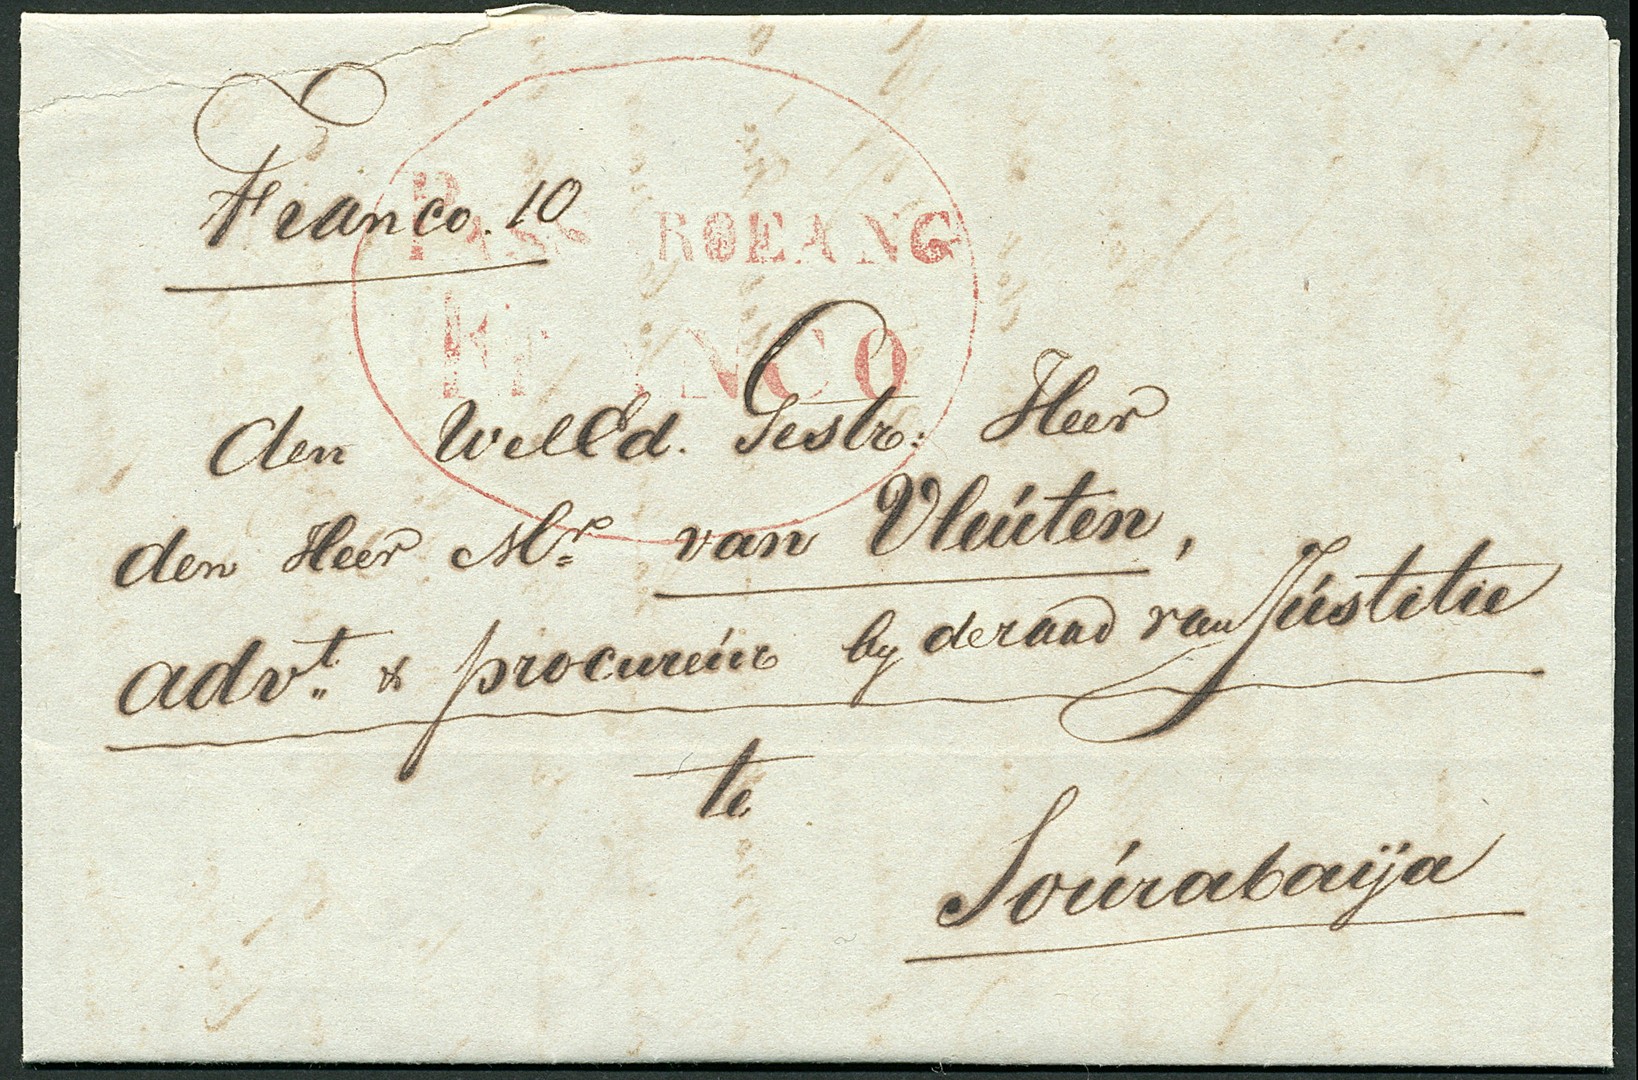 Franco. 10
PASSOEROEANG
FRANCO
den WelEd. Gestr: Heer
den Heer Mr. van Vleúten,
advt. & procureúr by de raad van Jústitie
te
Soúrabaÿa